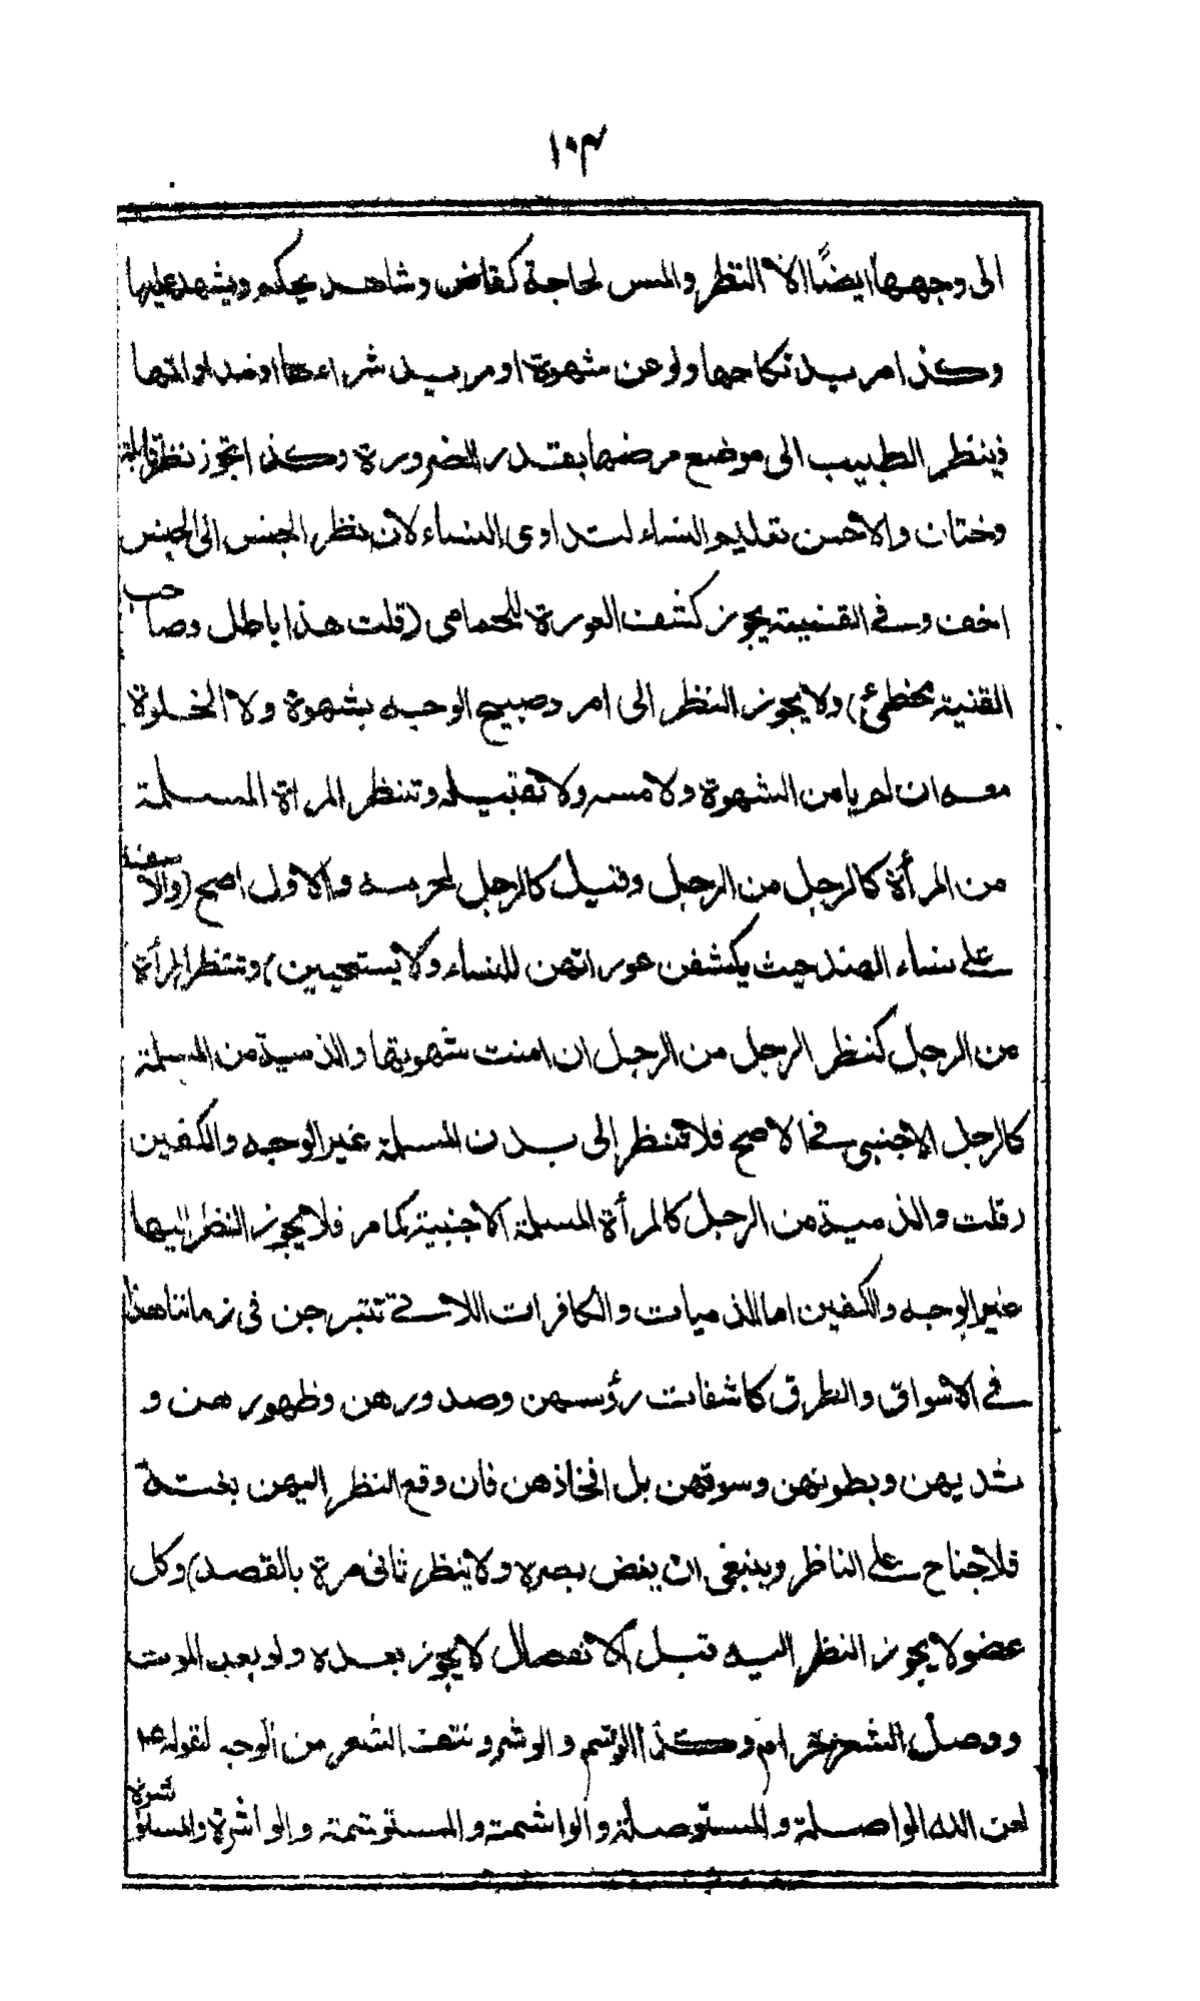 ١٠٣
الى وجهها ايضًا الا النظر والمس لحاجة كقاض وشاهد يحكم ويشهد عليها
وكذا مريد نكاحها ولو عن شهوة او مريد شراءها او مداواتها
فينظر الطبيب الى موضع مرضها بقدر الضرورة وكذا تجوز نظر قابلة
وختان والاحسن تعليم النساء لتداوى النساء لان نظر الجنس الى الجنس
اخف وفى القنية يجوز كشف العورة للحمامى (قلت هذا باطل وصاحب
القنية مخطئ) ولا يجوز النظر الى امرد صبيح الوجه بشهوة ولا الخلوة
معه ان لم يامن الشهوة ولا مسه ولا تقبيله وتنظر المراة المسلمة
من المرأة كالرجل من الرجل وقيل كالرجل لمحرمه والاول اصح (والا
على نساء الهند حيث يكشفن عوراتهن للنساء ولا يستحيين) وتنظر المرأة
من الرجل كنظر الرجل من الرجل ان امنت شهوتها والذمية من المسلمة
كالرجل الاجنبى فى الاصح فلا تنظر الى بدن المسلمة غير الوجه والكفين
(قلت والذمية من الرجل كالمرأة المسلمة الاجنبية كما مر فلا يجوز النظر اليها
غير الوجه والكفين اما الذميات والكافرات اللاتى تتبرجن فى زماننا هذا
فى الاسواق والطرق كاشفات رؤسهن وصدورهن وظهورهن و
ثديهن وبطونهن وسوقهن بل افخاذهن فان وقع النظر اليهن بغتة
فلا جناح على الناظر وينبغى ان يغض بصره ولا ينظر ثانى مرة بالقصد) وكل
عضو لا يجوز النظر اليه قبل الانفصال لا يجوز بعده ولو بعد الموت
ووصل الشعر حرام وكذا الوشم والوشر ونتف الشعر من الوجه لقوله عم
لعن الله الواصلة والمستوصلة والواشمة والمستوشمة والواشرة والمستوشرة